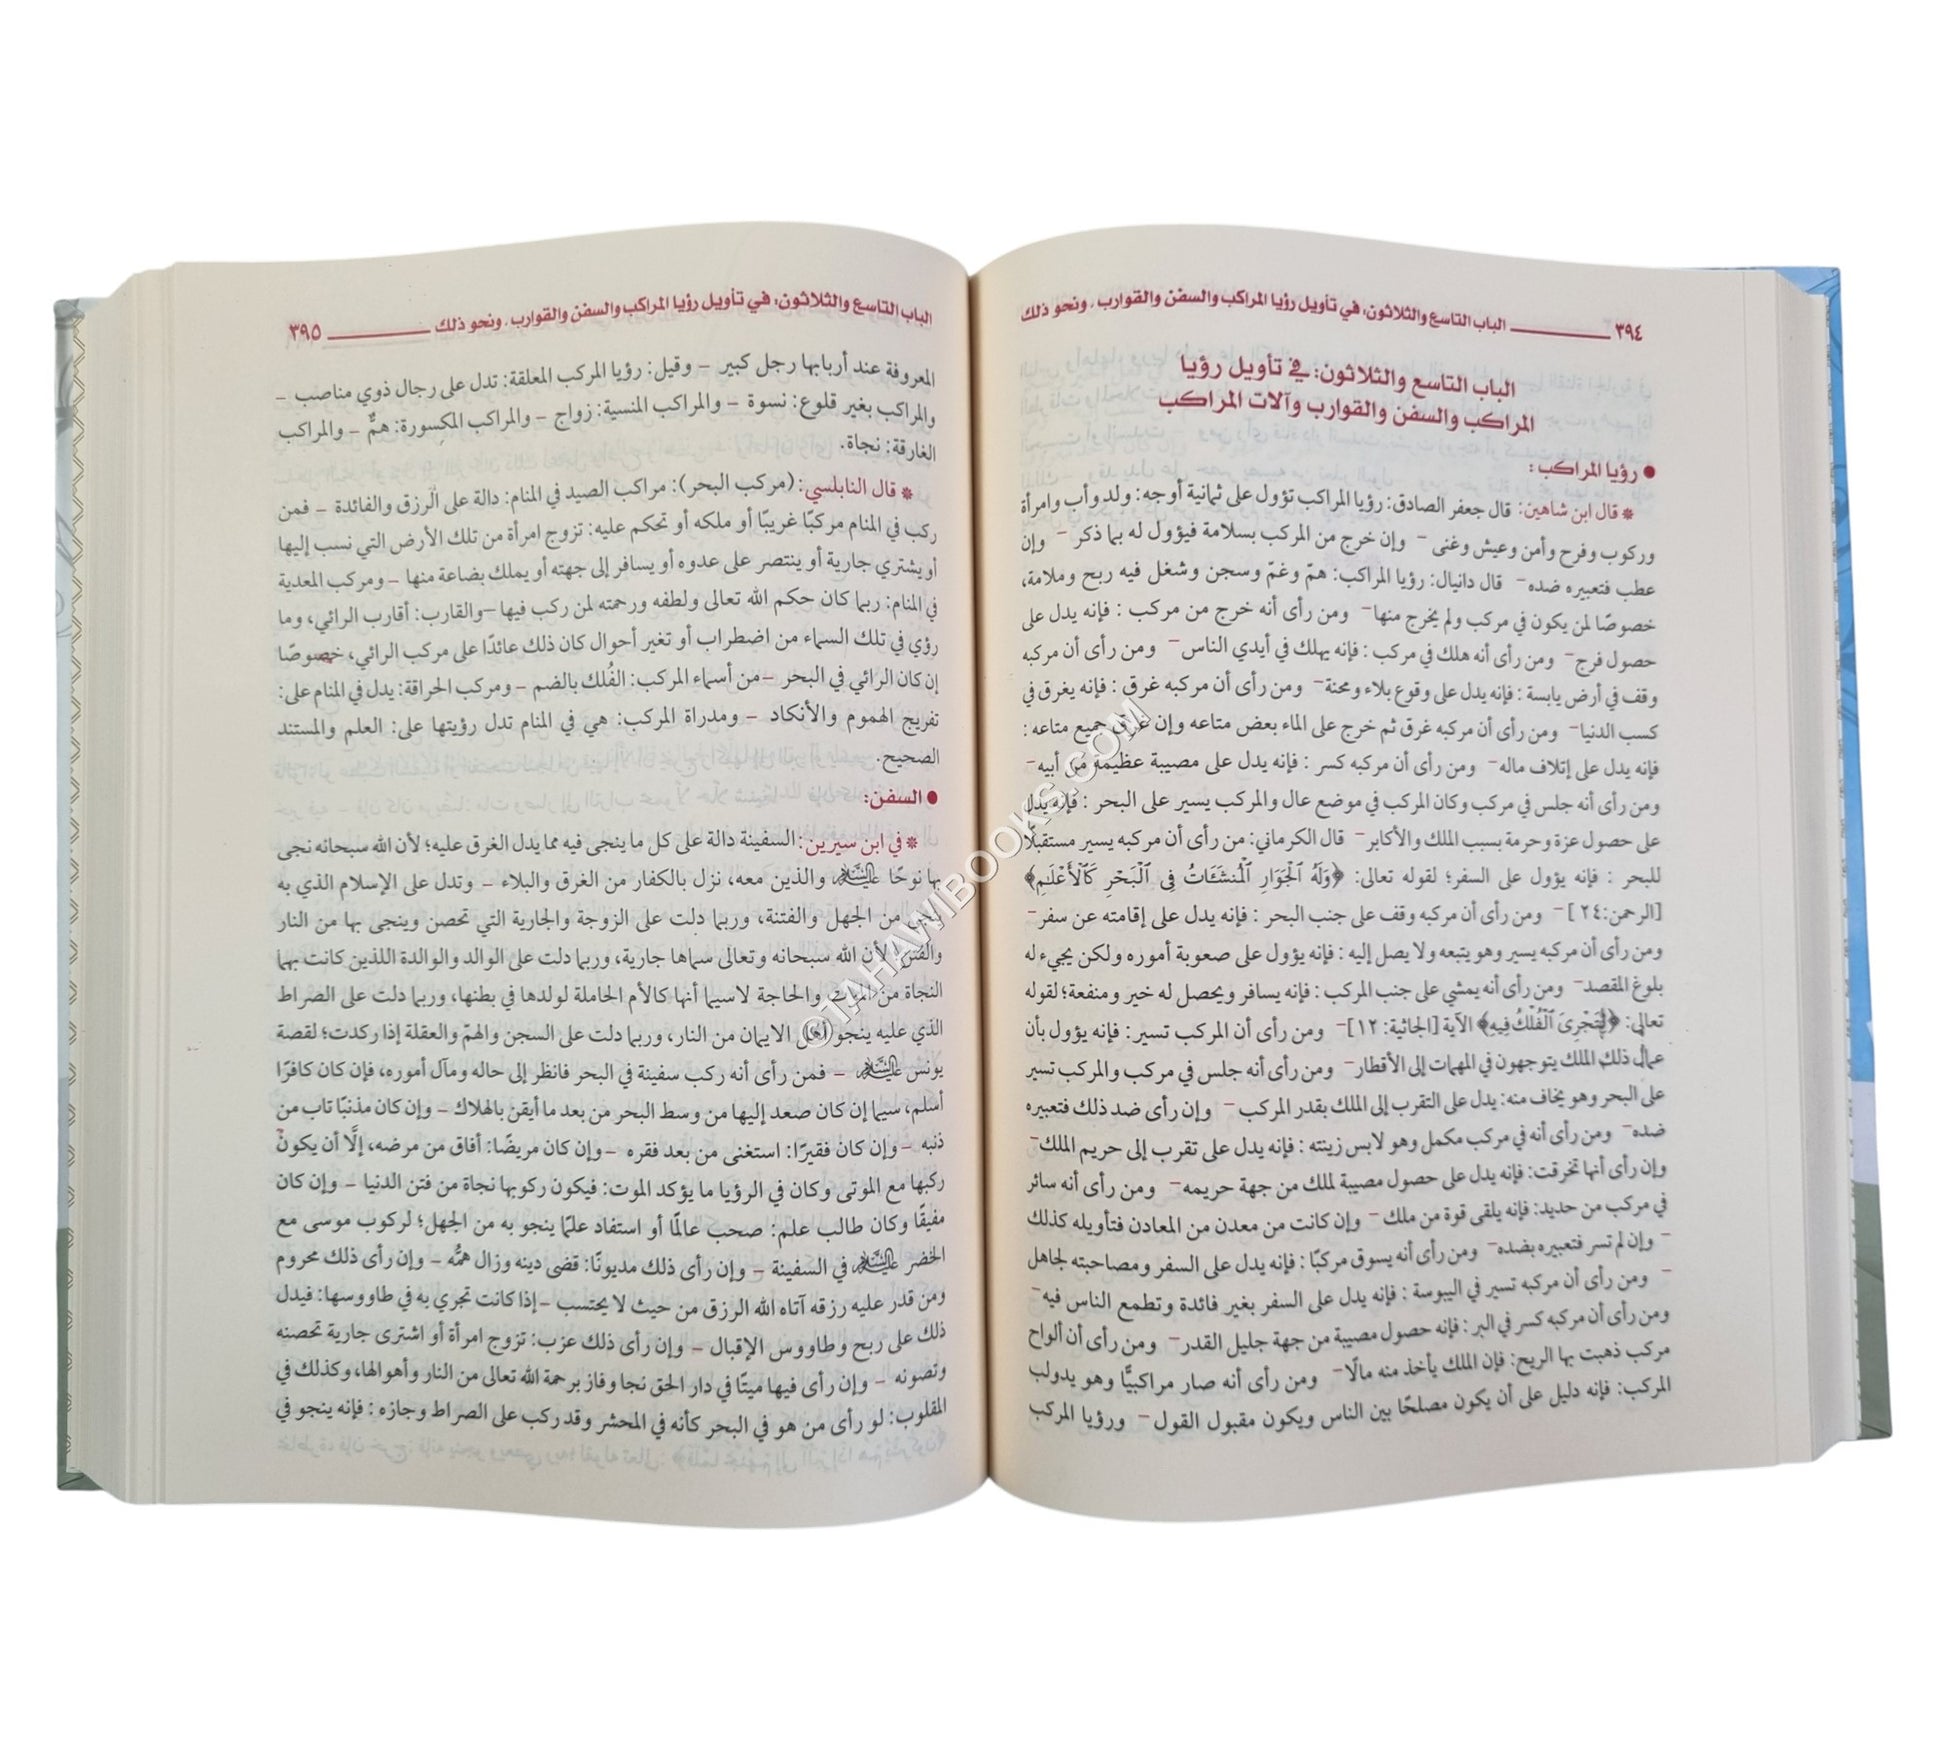 ٣٩٤ ــــــــ الباب التاسع والثلاثون: في تأويل رؤيا المراكب والسفن والقوارب، ونحو ذلك
الباب التاسع والثلاثون: في تأويل رؤيا
المراكب والسفن والقوارب وآلات المراكب
● رؤيا المراكب:
* قال ابن شاهين: قال جعفر الصادق: رؤيا المراكب تؤول على ثمانية أوجه: ولد وأب وامرأة
وركوب وفرح وأمن وعيش وغنى – وإن خرج من المركب بسلامة فيؤول له بما ذكر – وإن
عطب فتعبيره ضده – قال دانيال: رؤيا المراكب: همّ وغمّ وسجن وشغل فيه ربح وملامة،
خصوصًا لمن يكون في مركب ولم يخرج منها – ومن رأى أنه خرج من مركب : فإنه يدل على
حصول فرج – ومن رأى أنه هلك في مركب : فإنه يهلك في أيدي الناس – ومن رأى أن مركبه
وقف في أرض يابسة : فإنه يدل على وقوع بلاء ومحنة – ومن رأى أن مركبه غرق : فإنه يغرق في
كسب الدنيا – ومن رأى أن مركبه غرق ثم خرج على الماء بعض متاعه وإن غرق جميع متاعه :
فإنه يدل على إتلاف ماله – ومن رأى أن مركبه كسر : فإنه يدل على مصيبة عظيمة من أبيه –
ومن رأى أنه جلس في مركب وكان المركب في موضع عال والمركب يسير على البحر : فإنه يدل
على حصول عزة وحرمة بسبب الملك والأكابر – قال الكرماني: من رأى أن مركبه يسير مستقبلًا
للبحر : فإنه يؤول على السفر؛ لقوله تعالى: ﴿وَلَهُ ٱلْجَوَارِ ٱلْمُنشَـَٔاتُ فِى ٱلْبَحْرِ كَٱلْأَعْلَـٰمِ﴾
[الرحمن:٢٤] – ومن رأى أن مركبه وقف على جنب البحر : فإنه يدل على إقامته عن سفر –
ومن رأى أن مركبه يسير وهو يتبعه ولا يصل إليه : فإنه يؤول على صعوبة أموره ولكن يجيء له
بلوغ المقصد – ومن رأى أنه يمشي على جنب المركب : فإنه يسافر ويحصل له خير ومنفعة؛ لقوله
تعالى: ﴿لِتَجْرِىَ ٱلْفُلْكُ فِيهِ﴾ الآية [الجاثية: ١٢] – ومن رأى أن المركب تسير : فإنه يؤول بأن
عمال ذلك الملك يتوجهون في المهمات إلى الأقطار – ومن رأى أنه جلس في مركب والمركب تسير
على البحر وهو يخاف منه: يدل على التقرب إلى الملك بقدر المركب – وإن رأى ضد ذلك فتعبيره
ضده – ومن رأى أنه في مركب مكمل وهو لابس زينته : فإنه يدل على تقرب إلى حريم الملك –
وإن رأى أنها تخرقت: فإنه يدل على حصول مصيبة لملك من جهة حريمه – ومن رأى أنه سائر
في مركب من حديد: فإنه يلقى قوة من ملك – وإن كانت من معدن من المعادن فتأويله كذلك
– وإن لم تسر فتعبيره بضده – ومن رأى أنه يسوق مركبًا : فإنه يدل على السفر ومصاحبته لجاهل
– ومن رأى أن مركبه تسير في اليبوسة : فإنه يدل على السفر بغير فائدة وتطمع الناس فيه –
ومن رأى أن مركبه كسر في البر : فإنه حصول مصيبة من جهة جليل القدر – ومن رأى أن ألواح
مركب ذهبت بها الريح: فإن الملك يأخذ منه مالًا – ومن رأى أنه صار مراكبيًّا وهو يدولب
المركب: فإنه دليل على أن يكون مصلحًا بين الناس ويكون مقبول القول – ورؤيا المركب
الباب التاسع والثلاثون: في تأويل رؤيا المراكب والسفن والقوارب، ونحو ذلك ــــــــ ٣٩٥
المعروفة عند أربابها رجل كبير – وقيل: رؤيا المركب المعلقة: تدل على رجال ذوي مناصب –
والمراكب بغير قلوع: نسوة – والمراكب المنسية: زواج – والمراكب المكسورة: همٌّ – والمراكب
الغارقة: نجاة.
* قال النابلسي: (مركب البحر): مراكب الصيد في المنام: دالة على الرزق والفائدة – فمن
ركب في المنام مركبًا غريبًا أو ملكه أو تحكم عليه: تزوج امرأة من تلك الأرض التي نسب إليها
أو يشتري جارية أو ينتصر على عدوه أو يسافر إلى جهته أو يملك بضاعة منها – ومركب المعدية
في المنام: ربما كان حكم الله تعالى ولطفه ورحمته لمن ركب فيها – والقارب: أقارب الرائي، وما
رؤي في تلك السماء من اضطراب أو تغير أحوال كان ذلك عائدًا على مركب الرائي، خصوصًا
إن كان الرائي في البحر – من أسماء المركب: الفُلك بالضم – ومركب الحراقة: يدل في المنام على:
تفريج الهموم والأنكاد – ومدراة المركب: هي في المنام تدل رؤيتها على: العلم والمستند
الصحيح.
● السفن:
* في ابن سيرين: السفينة دالة على كل ما ينجى فيه مما يدل الغرق عليه؛ لأن الله سبحانه نجى
بها نوحًا عليه السلام والذين معه، نزل بالكفار من الغرق والبلاء – وتدل على الإسلام الذي به
ينجى من الجهل والفتنة، وربما دلت على الزوجة والجارية التي تحصن وينجى بها من النار
والفتن؛ لأن الله سبحانه وتعالى سماها جارية، وربما دلت على الوالد والوالدة اللذين كانت بهما
النجاة من الموت والحاجة لاسيما أنها كالأم الحاملة لولدها في بطنها، وربما دلت على الصراط
الذي عليه ينجو أهل الايمان من النار، وربما دلت على السجن والهمّ والعقلة إذا ركدت؛ لقصة
يونس عليه السلام – فمن رأى أنه ركب سفينة في البحر فانظر إلى حاله ومآل أموره، فإن كان كافرًا
أسلم، سيما إن كان صعد إليها من وسط البحر من بعد ما أيقن بالهلاك – وإن كان مذنبًا تاب من
ذنبه – وإن كان فقيرًا: استغنى من بعد فقره – وإن كان مريضًا: أفاق من مرضه، إلَّا أن يكون
ركبها مع الموتى وكان في الرؤيا ما يؤكد الموت: فيكون ركوبها نجاة من فتن الدنيا – وإن كان
مفيقًا وكان طالب علم: صحب عالمًا أو استفاد علمًا ينجو به من الجهل؛ لركوب موسى مع
الخضر عليه السلام في السفينة – وإن رأى ذلك مديونًا: قضى دينه وزال همُّه – وإن رأى ذلك محروم
ومن قدر عليه رزقه آتاه الله الرزق من حيث لا يحتسب – إذا كانت تجري به في طاووسها: فيدل
ذلك على ربح وطاووس الإقبال – وإن رأى ذلك عزب: تزوج امرأة أو اشترى جارية تحصنه
وتصونه – وإن رأى فيها ميتًا في دار الحق نجا وفاز برحمة الله تعالى من النار وأهوالها، وكذلك في
المقلوب: لو رأى من هو في البحر كأنه في المحشر وقد ركب على الصراط وجازه : فإنه ينجو في
©TAHAWIBOOKS.COM